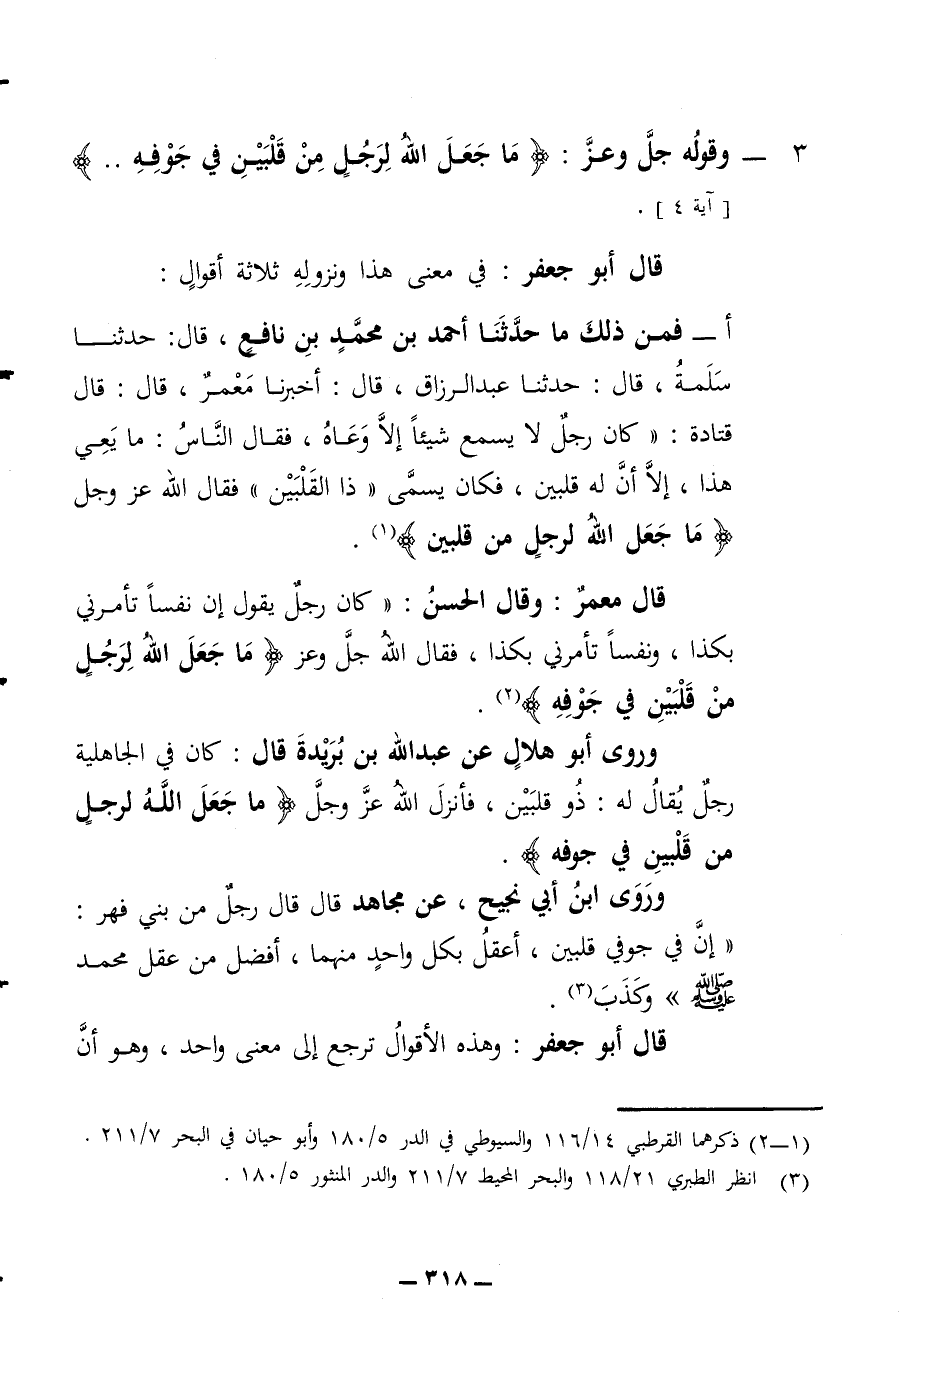 ٣ ــ وقولُه جلَّ وعزَّ : ﴿ مَا جَعَلَ اللهُ لِرَجُلٍ مِنْ قَلْبَيْنِ في جَوْفِهِ .. ﴾
[ آية ٤ ] .
قال أبو جعفر : في معنى هذا ونزولِهِ ثلاثة أقوالٍ :
أ ــ فمن ذلك ما حدَّثَنَا أحمد بن محمَّدٍ بنِ نافعٍ ، قال: حدثنا
سَلَمةُ ، قال : حدثنا عبدالرزاق ، قال : أخبرنا مَعْمرٌ ، قال : قال
قتادة : « كان رجلٌ لا يسمع شيئاً إلاَّ وَعَاهُ ، فقال النَّاسُ : ما يَعِي
هذا ، إلاَّ أنَّ له قلبين ، فكان يسمَّى « ذا القَلْبَيْن » فقال الله عز وجل
﴿ مَا جَعَل اللهُ لرجلٍ من قلبين ﴾(١) .
قال معمرٌ : وقال الحسنُ : « كان رجلٌ يقول إن نفساً تأمرني
بكذا ، ونفساً تأمرني بكذا ، فقال اللهُ جلَّ وعز ﴿ مَا جَعَلَ اللهُ لِرَجُلٍ
منْ قَلْبَيْنِ في جَوْفِهِ ﴾(٢) .
وروى أبو هلالٍ عن عبدالله بن بُرَيْدةَ قال : كان في الجاهلية
رجلٌ يُقالُ له : ذُو قلبَيْن ، فأنزلَ اللهُ عزَّ وجلَّ ﴿ ما جَعَلَ اللَّهُ لرجلٍ
من قَلْبينِ في جوفه ﴾ .
ورَوَى ابنُ أبي نجيح ، عن مجاهد قال قال رجلٌ من بني فهر :
« إنَّ في جوفي قلبين ، أعقلُ بكل واحدٍ منهما ، أفضل من عقل محمد
ﷺ » وكَذَبَ(٣) .
قال أبو جعفر : وهذه الأقوالُ ترجع إلى معنى واحد ، وهو أنَّ
(١ــ٢) ذكرهما القرطبي ١١٦/١٤ والسيوطي في الدر ١٨٠/٥ وأبو حيان في البحر ٢١١/٧ .
(٣) انظر الطبري ١١٨/٢١ والبحر المحيط ٢١١/٧ والدر المنثور ١٨٠/٥ .
ــ ٣١٨ ــ